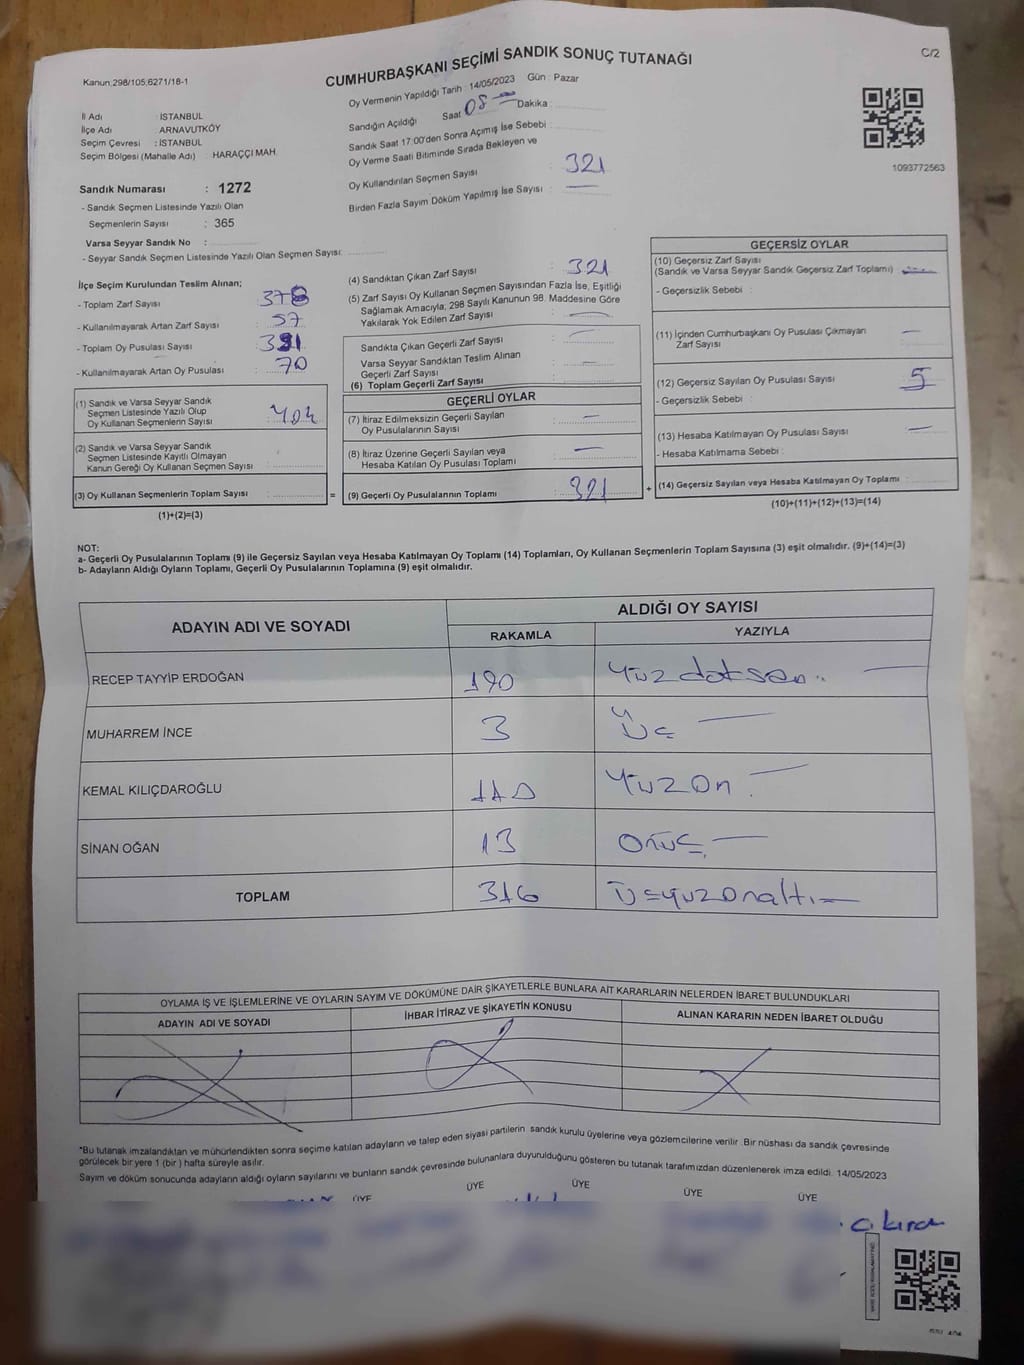 Kanun;298/105;6271/18-1
CUMHURBAŞKANI SEÇİMİ SANDIK SONUÇ TUTANAĞI
C/2
İl Adı : İSTANBUL
İlçe Adı : ARNAVUTKÖY
Seçim Çevresi : İSTANBUL
Seçim Bölgesi (Mahalle Adı) : HARAÇÇI MAH.
Sandık Numarası : 1272
- Sandık Seçmen Listesinde Yazılı Olan
Seçmenlerin Sayısı : 365
Varsa Seyyar Sandık No :
- Seyyar Sandık Seçmen Listesinde Yazılı Olan Seçmen Sayısı:
Oy Vermenin Yapıldığı Tarih : 14/05/2023 Gün : Pazar
Sandığın Açıldığı Saat 08 Dakika :
Sandık Saat 17:00'den Sonra Açımış İse Sebebi :
Oy Verme Saati Bitiminde Sırada Bekleyen ve
Oy Kullandırılan Seçmen Sayısı : 321
Birden Fazla Sayım Döküm Yapılmış İse Sayısı :
1093772563
İlçe Seçim Kurulundan Teslim Alınan;
- Toplam Zarf Sayısı : 378
- Kullanılmayarak Artan Zarf Sayısı : 57
- Toplam Oy Pusulası Sayısı : 391
- Kullanılmayarak Artan Oy Pusulası : 70
(1) Sandık ve Varsa Seyyar Sandık
Seçmen Listesinde Yazılı Olup
Oy Kullanan Seçmenlerin Sayısı :
(2) Sandık ve Varsa Seyyar Sandık
Seçmen Listesinde Kayıtlı Olmayan
Kanun Gereği Oy Kullanan Seçmen Sayısı :
(3) Oy Kullanan Seçmenlerin Toplam Sayısı : =
(1)+(2)=(3)
(4) Sandıktan Çıkan Zarf Sayısı : 321
(5) Zarf Sayısı Oy Kullanan Seçmen Sayısından Fazla İse, Eşitliği
Sağlamak Amacıyla, 298 Sayılı Kanunun 98. Maddesine Göre
Yakılarak Yok Edilen Zarf Sayısı :
Sandıkta Çıkan Geçerli Zarf Sayısı :
Varsa Seyyar Sandıktan Teslim Alınan
Geçerli Zarf Sayısı :
(6) Toplam Geçerli Zarf Sayısı :
GEÇERLİ OYLAR
(7) İtiraz Edilmeksizin Geçerli Sayılan
Oy Pusulalarının Sayısı : —
(8) İtiraz Üzerine Geçerli Sayılan veya
Hesaba Katılan Oy Pusulası Toplamı : —
(9) Geçerli Oy Pusulalarının Toplamı : 321 +
GEÇERSİZ OYLAR
(10) Geçersiz Zarf Sayısı
(Sandık ve Varsa Seyyar Sandık Geçersiz Zarf Toplamı) : —
- Geçersizlik Sebebi :
(11) İçinden Cumhurbaşkanı Oy Pusulası Çıkmayan
Zarf Sayısı : —
(12) Geçersiz Sayılan Oy Pusulası Sayısı : 5
- Geçersizlik Sebebi :
(13) Hesaba Katılmayan Oy Pusulası Sayısı : —
- Hesaba Katılmama Sebebi :
(14) Geçersiz Sayılan veya Hesaba Katılmayan Oy Toplamı :
(10)+(11)+(12)+(13)=(14)
NOT:
a- Geçerli Oy Pusulalarının Toplamı (9) ile Geçersiz Sayılan veya Hesaba Katılmayan Oy Toplamı (14) Toplamları, Oy Kullanan Seçmenlerin Toplam Sayısına (3) eşit olmalıdır. (9)+(14)=(3)
b- Adayların Aldığı Oyların Toplamı, Geçerli Oy Pusulalarının Toplamına (9) eşit olmalıdır.
ADAYIN ADI VE SOYADI
ALDIĞI OY SAYISI
RAKAMLA YAZIYLA
RECEP TAYYİP ERDOĞAN 190 Yüz doksan
MUHARREM İNCE 3 Üç
KEMAL KILIÇDAROĞLU 110 Yüzon
SİNAN OĞAN 13 Onüç
TOPLAM 316 Üçyüzonaltı
OYLAMA İŞ VE İŞLEMLERİNE VE OYLARIN SAYIM VE DÖKÜMÜNE DAİR ŞİKAYETLERLE BUNLARA AİT KARARLARIN NELERDEN İBARET BULUNDUKLARI
ADAYIN ADI VE SOYADI İHBAR İTİRAZ VE ŞİKAYETİN KONUSU ALINAN KARARIN NEDEN İBARET OLDUĞU
*Bu tutanak imzalandıktan ve mühürlendikten sonra seçime katılan adayların ve talep eden siyasi partilerin sandık kurulu üyelerine veya gözlemcilerine verilir. Bir nüshası da sandık çevresinde
görülecek bir yere 1 (bir ) hafta süreyle asılır.
Sayım ve döküm sonucunda adayların aldığı oyların sayılarını ve bunların sandık çevresinde bulunanlara duyurulduğunu gösteren bu tutanak tarafımızdan düzenlenerek imza edildi. 14/05/2023
ÜYE ÜYE ÜYE ÜYE ÜYE